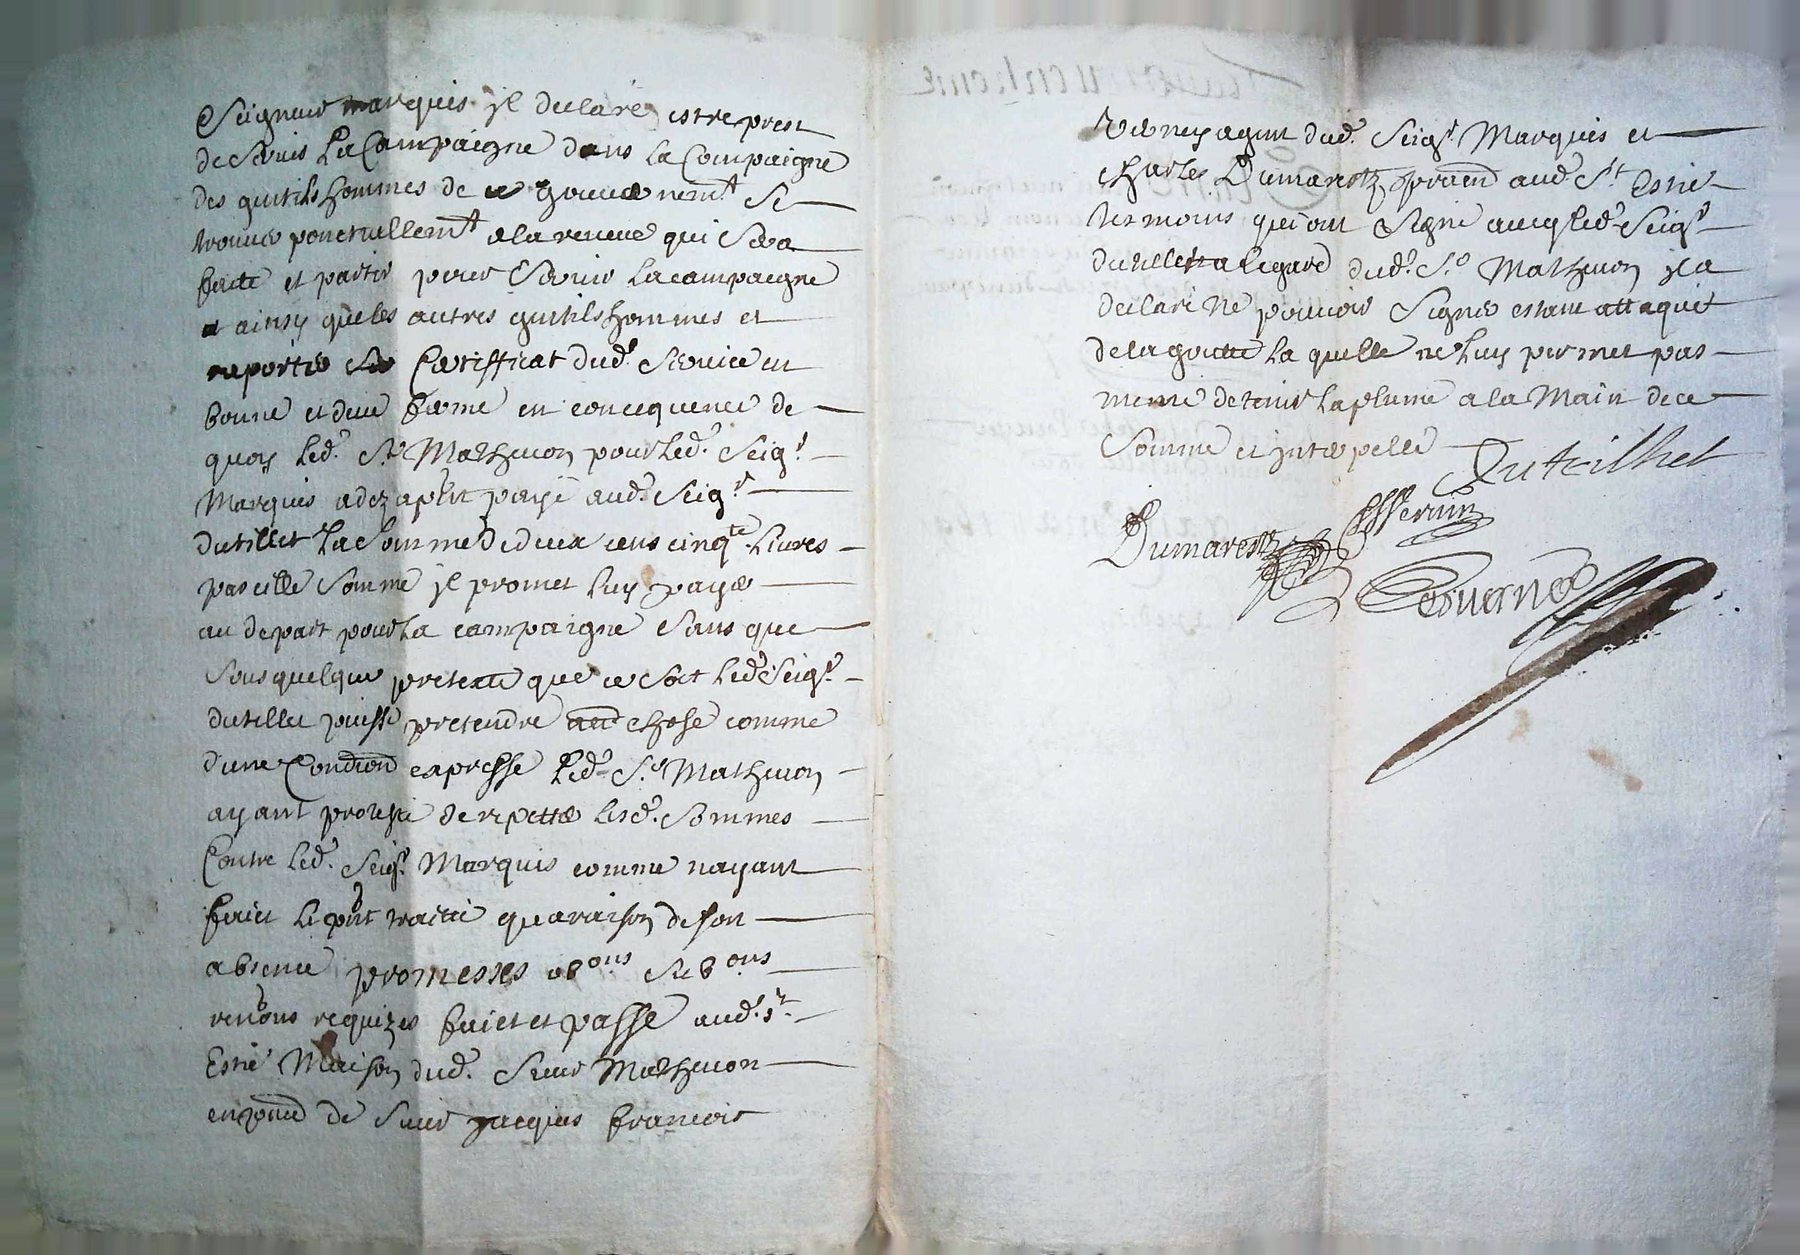 Seigneur marquis jl declare estre prest
de Servir La Campaigne dans la Compaigne
des gentilshommes de ce gouvernem.t Se
trouver ponctuellem.t a la reveue qui Sera
faite et partir pour Servir la campaigne
ainsy que les autres gentilshommes et
raporter Son Certifficat dud.t Service en
bonne et deue forme en concequence de
quoy led.t S.r Mathevon pour led.t Seig.r
Marquis a dez aprnt payé aud.t Seig.r
dutillet La Somme de deux cens cinq.te Livres
pareille Somme jl promet luy payer
au depart pour la campaigne Sans que
Sous quelque pretexte que ce Soit led.t Seig.r
dutillet puisse pretendre autre chose comme
dune Condition expresse led.t S.r Mathevon
ayant protesté de repetter lesd.t Sommes
Contre led.t Seig.r Marquis comme nayant
faict le pnt traitté qua raison de son
absence promesses obons Sebons
renons requizes faict et passé aud.t S.t
Estie Maison dud.t Sieur Mathevon
en pnce de Sieur Jacques francois
agent dud.t Seig.r Marquis et
charles Dumarestz aud.t S.t Estie
tesmoins qui ont Signé avecq led.t Seig.r
dutillet a legard dud.t S.r Mathevon jl a
declaré ne pouvoir Signer estant attaquet
de la goutte la quelle ne luy permet pas
meme de tenir la plume a la Main de ce
Sommé et jnterpellé
Duteilhet
Dumarestz